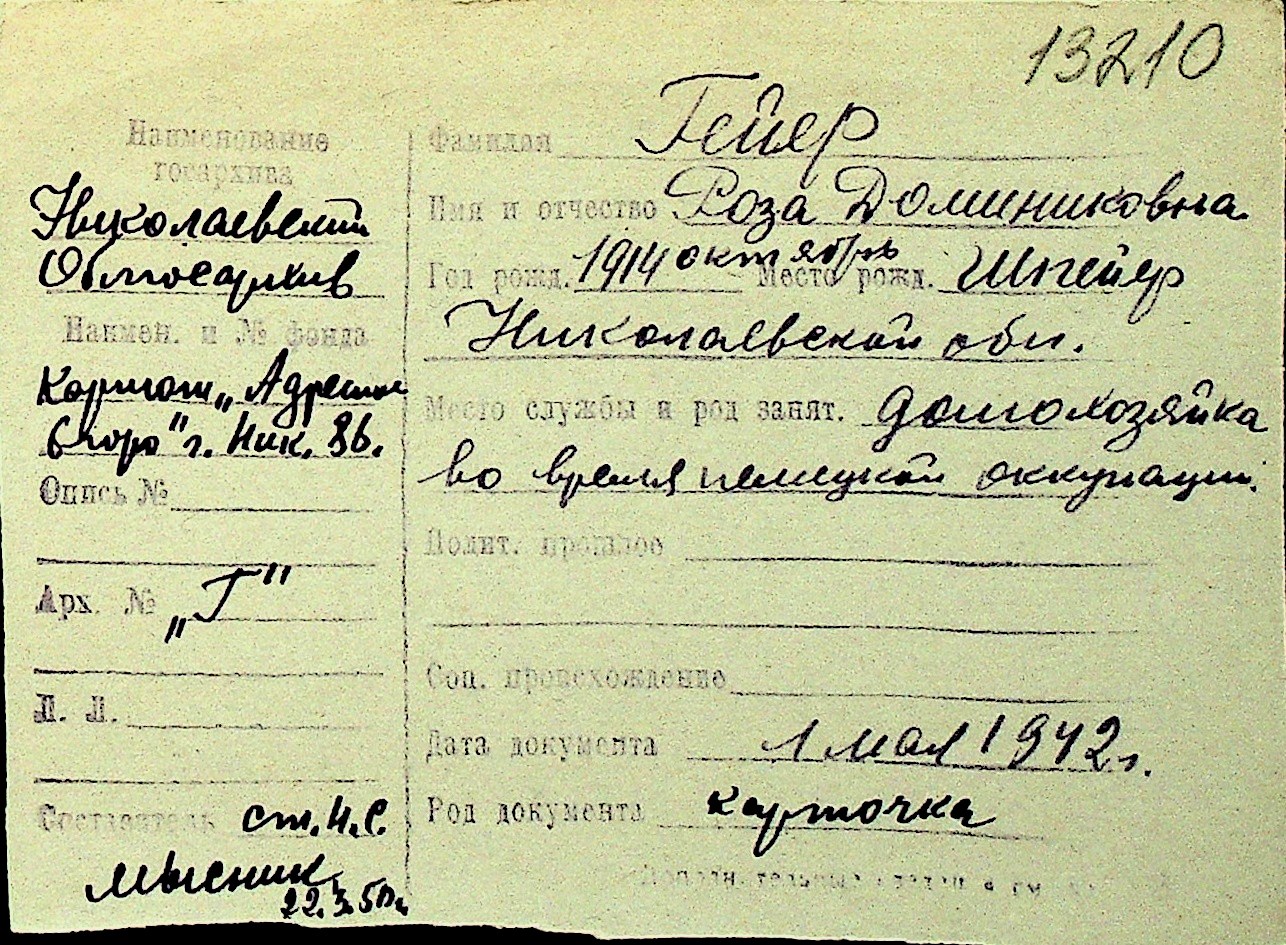 13210
Наименование
госархива
Николаевский
Облгосархив
Наимен. и № фонда
Картот. „Адресное
бюро" г. Ник.
Опись №
Арх. № „Г"
Л. Л.
Составитель ст. н. с.
Мысник
Фамилия Гейер
Имя и отчество Роза Доминиковна
Год рожд. 1914 октябрь Место рожд. Шпейер
Николаевской обл.
Место службы и род занят. домохозяйка
во время немецкой оккупации.
Полит. прошлое
Соц. происхождение
Дата документа 1 мая 1942 г.
Род документа карточка